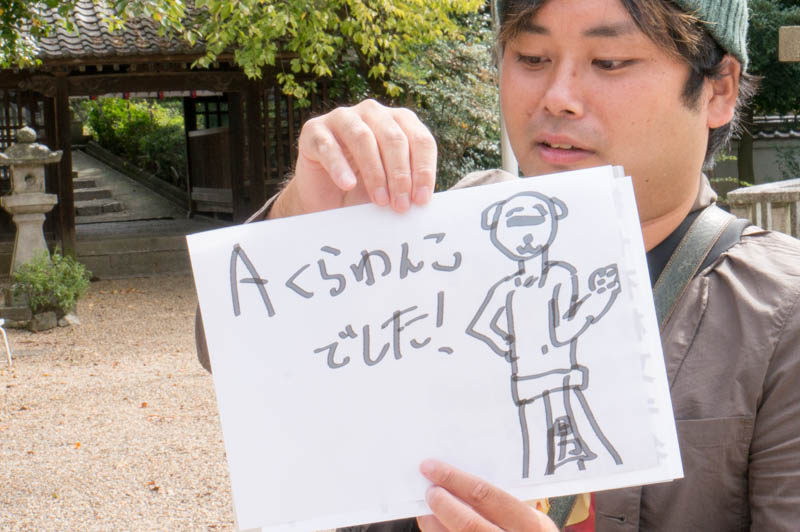 Aくらわんこ
でした!
男